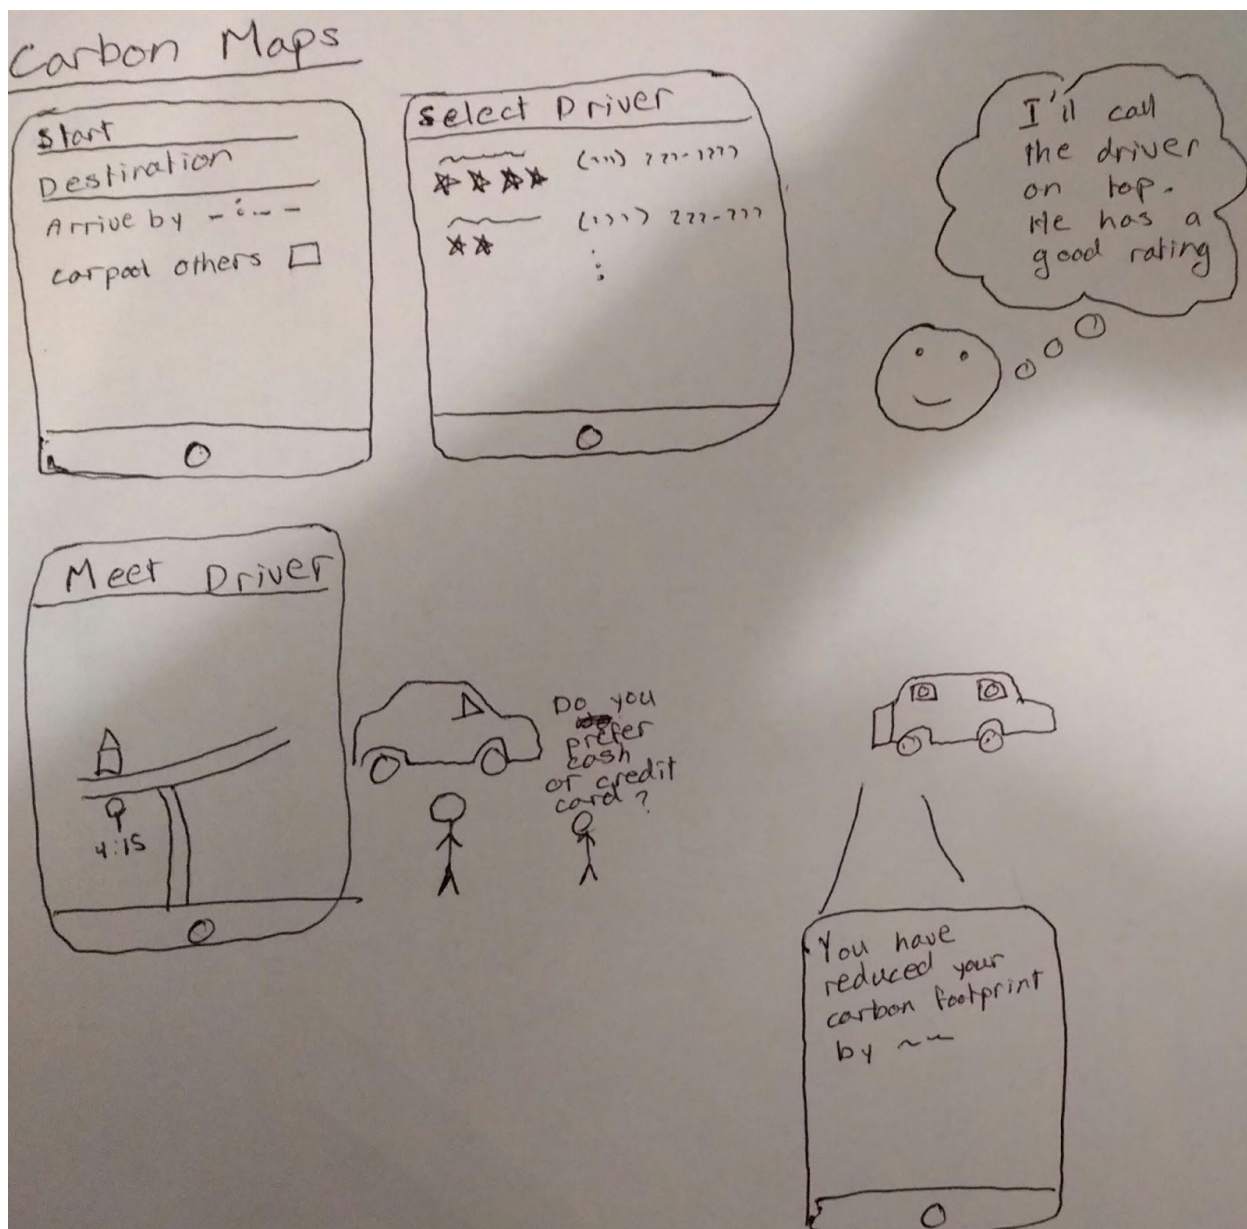 Carbon Maps
Start
Destination
Arrive by -:--
carpool others
Select Driver
(???) ???-????
(???) ???-???
I'll call
the driver
on top.
He has a
good rating
Meet Driver
4:15
Do you
prefer
cash
or credit
card?
You have
reduced your
carbon footprint
by ~~